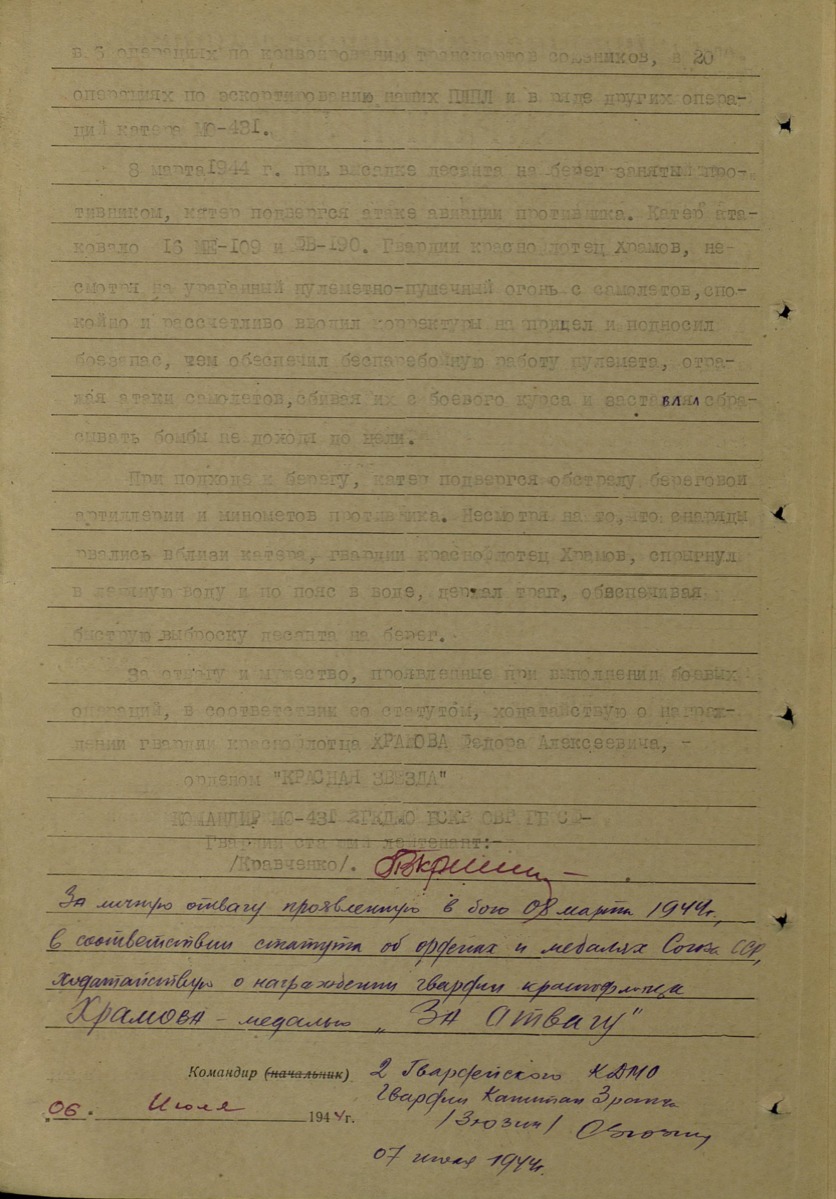 в 3 операциях по конвоированию транспортов союзников, в 20
операциях по эскортированию наших ПЛПЛ и в ряде других опера-
ций катера МО-431.
8 марта 1944 г. при высадке десанта на берег занятый про-
тивником, катер подвергся атаке авиации противника. Катер ата-
ковало 16 МЕ-109 и ФВ-190. Гвардии краснофлотец Храмов, не-
смотря на ураганный пулеметно-пушечный огонь с самолетов, спо-
койно и рассчетливо вводил корректуры на прицел и подносил
боезапас, чем обеспечил бесперебойную работу пулемета, отра-
жая атаки самолетов, сбивая их с боевого курса и заставляя сбра-
сывать бомбы не доходя до цели.
При подходе к берегу, катер подвергся обстрелу береговой
артиллерии и минометов противника. Несмотря на то, что снаряды
рвались вблизи катера, гвардии краснофлотец Храмов, спрыгнул
в ледяную воду и по пояс в воде, держал трап, обеспечивая
быструю выброску десанта на берег.
За отвагу и мужество, проявленные при выполнении боевых
операций, в соответствии со статутом, ходатайствую о награж-
дении гвардии краснофлотца ХРАМОВА Федора Алексеевича, -
орденом "КРАСНАЯ ЗВЕЗДА"
КОМАНДИР МО-431 2ГКДМО БСКР ОВР ГБ СФ-
Гвардии старший лейтенант:-
/Кравченко/.
За личную отвагу проявленную в бою 08 марта 1944г.,
в соответствии статута об орденах и медалях Союза ССР,
ходатайствую о награждении гвардии краснофлотца
Храмова - медалью „За Отвагу"
Командир (начальник) 2 Гвардейского КДМО
Гвардии Капитан 3 ранга
06. Июля 1944г.
/Зюзин/
07 июля 1944г.